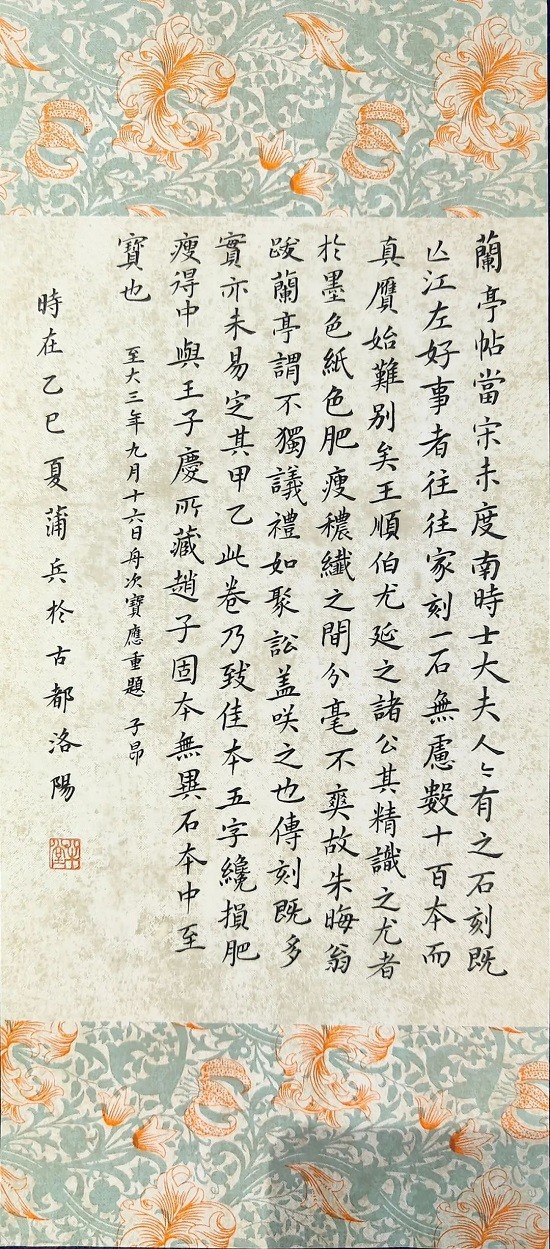 蘭亭帖當宋未度南時士大夫人〻有之石刻既
亾江左好事者往往家刻一石無慮數十百本而
真贗始難別矣王順伯尤延之諸公其精識之尤者
於墨色紙色肥瘦穠纖之間分毫不爽故朱晦翁
跋蘭亭謂不獨議禮如聚訟盖咲之也傳刻既多
實亦未易定其甲乙此卷乃致佳本五字纔損肥
瘦得中與王子慶所藏趙子固本無異石本中至
寳也 至大三年九月十六日舟次寶應重題 子昂
時在乙巳夏蒲兵於古都洛陽